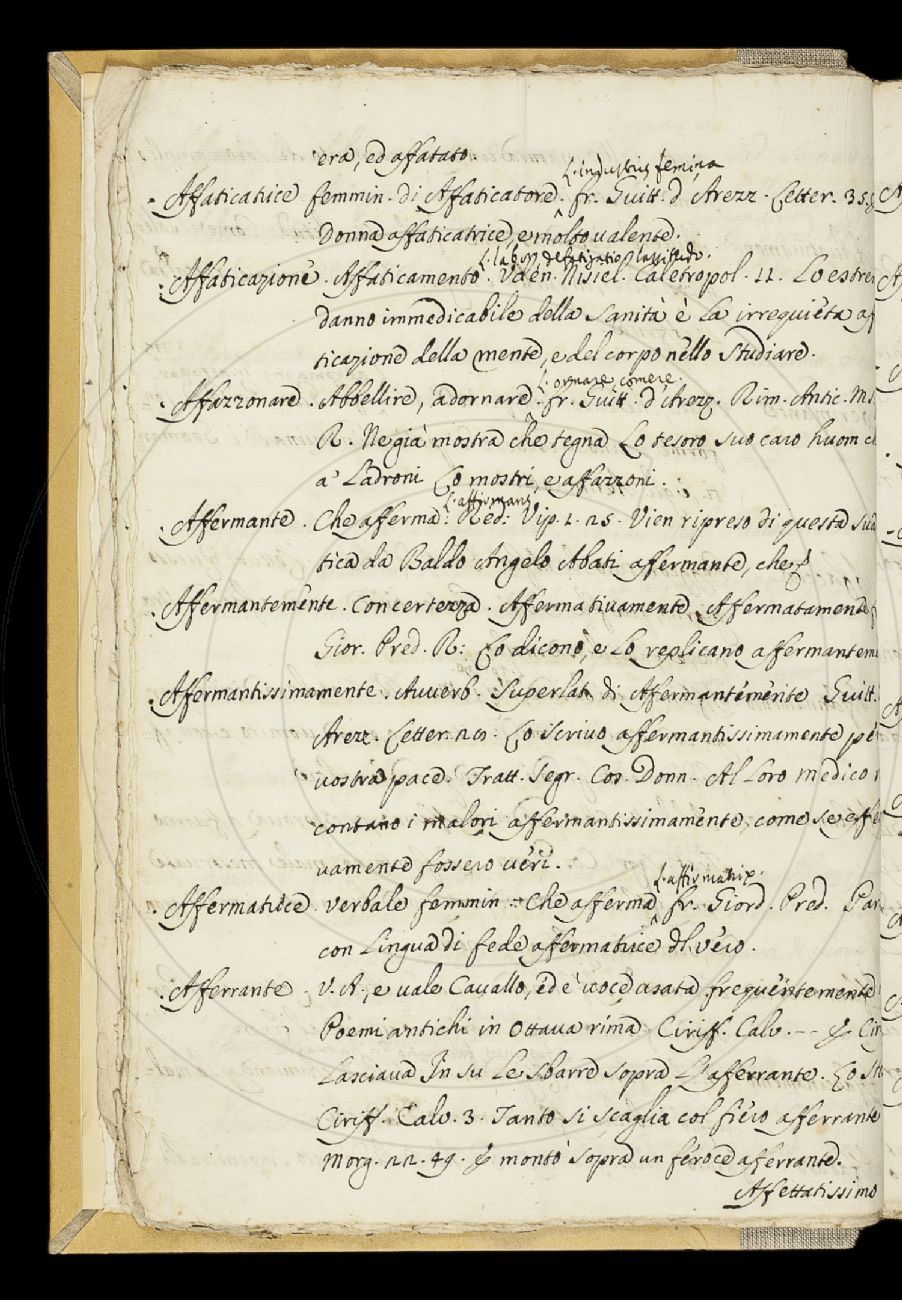 era, ed affatato.
L. industris femina
Affaticatrice femmin. di Affaticatore. fr. Guitt. d'Arezz. Letter. 35.
Donna affaticatrice, e molto valente.
L. labor, defatigatio, lassitudo.
Affaticazione. Affaticamento. Uden. Nisiel. Caletropol. 11. Lo estre
danno immedicabile della Sanità è la irrequieta af
ticazione della mente, e del corpo nello Studiare.
L. ornare, comere.
Affazzonare. Abbellire, adornare. fr. Guitt. d'Arezz. Rim. Antic. Ms.
R. Ne già mostra che tegna Lo tesoro suo caro huom c
a' Ladroni Lo mostri, e affazzoni.
L. affirmans
Affermante. Che afferma. Red. Vip. 1. 25. Vien ripreso di questa sua
tica da Baldo Angelo Abati affermante, che
Affermantemente. Con certezza. Affermativamente, Affermatamente
Gior. Pred. R. Lo dicono, e Lo replicano affermantem
Affermantissimamente. Avverb. Superlat. di Affermantemente Guitt.
Arezz. Letter. 20. Lo scrivo affermantissimamente pe
vostra pace. Tratt. Segr. Cos. Donn. Al Loro medico
contano i malori affermantissimamente, come se effe
vamente fossero veri.
L. affirmatrix.
Affermatrice. verbale femmin. Che afferma fr. Giord. Pred. Par
con Lingua di fede affermatrice dl. vero.
Afferrante. V. A., e vale Cavallo, ed è voce usata frequentemente
Poemi antichi in Ottava rima Ciriff. Calv. -- E Cir
Lasciava In su Le Sbarre sopra L'afferrante. Lo St
Ciriff. Calv. 3. Tanto si scaglia col fiero afferrante
Morg. 22. 49. E montò sopra un feroce afferrante.
Affettatissimo